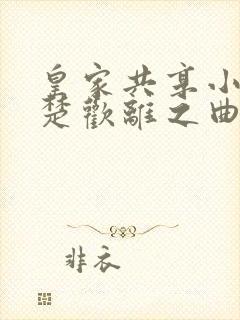 皇家共享小
楚歡離之曲
非衣